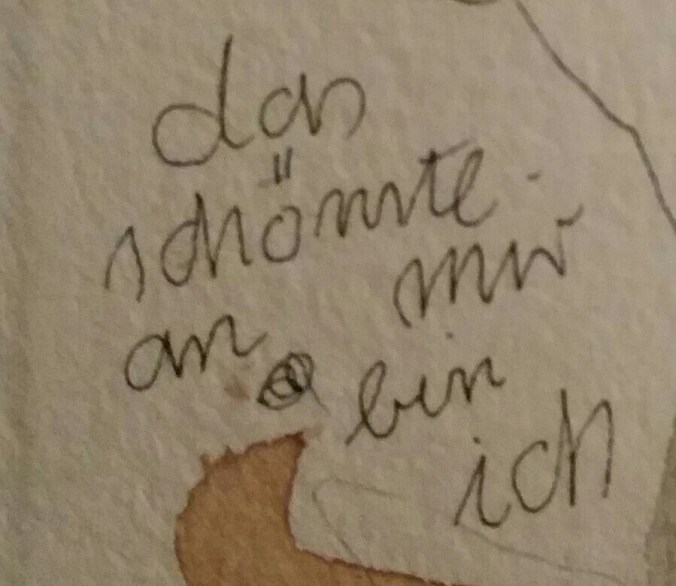 das
schönste
an mir
bin
ich